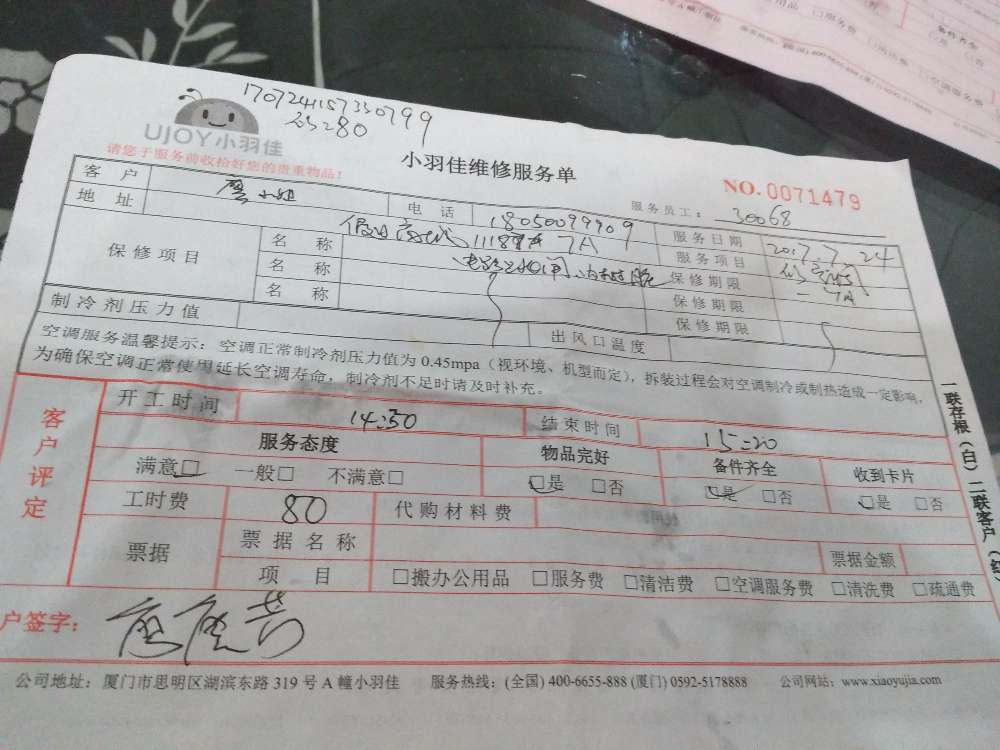 170724157330799
UJOY小羽佳
请您于服务前收拾好您的贵重物品！
小羽佳维修服务单
NO.0071479
服务员工： 30068
客户 廖小姐 电话 18050099909 服务日期 2017.7.24
地址 服务项目
保修项目 名称 保修期限
名称 保修期限
名称 保修期限
制冷剂压力值 出风口温度
空调服务温馨提示：空调正常制冷剂压力值为 0.45mpa（视环境、机型而定），拆装过程会对空调制冷或制热造成一定影响，
为确保空调正常使用延长空调寿命，制冷剂不足时请及时补充。
客户评定
开工时间 14:50 结束时间 15:20
服务态度 物品完好 备件齐全 收到卡片
满意□ 一般□ 不满意□ □是 □否 □是 □否 □是 □否
工时费 80 代购材料费
票据 票据名称 票据金额
项目 □搬办公用品 □服务费 □清洁费 □空调服务费 □清洗费 □疏通费
户签字：
公司地址：厦门市思明区湖滨东路 319 号 A 幢小羽佳 服务热线：(全国) 400-6655-888 (厦门) 0592-5178888 公司网站：www.xiaoyujia.com
一联存根（白）二联客户（红